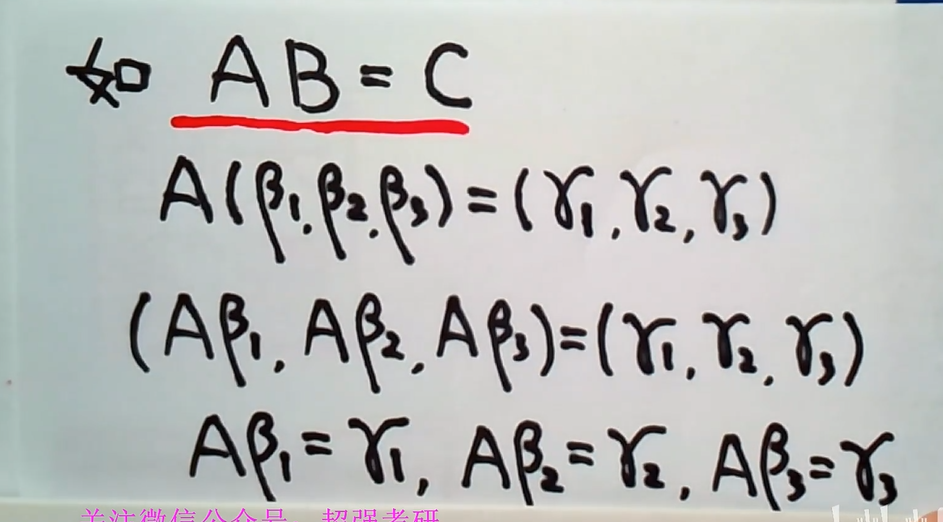 如 AB=C
A(β₁,β₂,β₃)=(γ₁,γ₂,γ₃)
(Aβ₁,Aβ₂,Aβ₃)=(γ₁,γ₂,γ₃)
Aβ₁=γ₁, Aβ₂=γ₂, Aβ₃=γ₃
关注微信公众号 超强考研